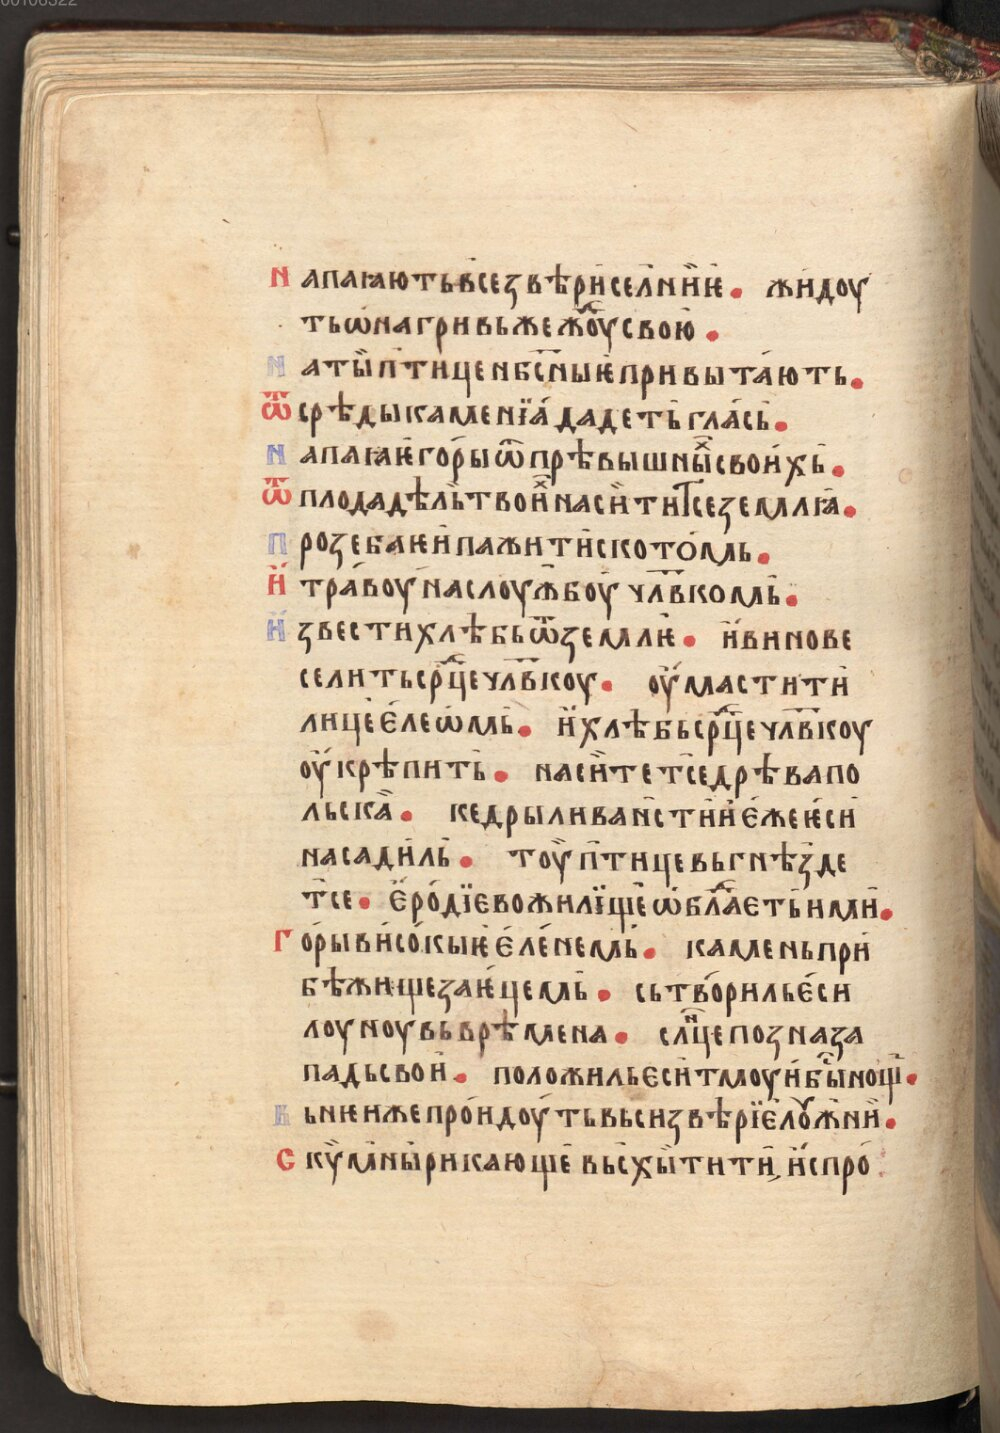 00106322
Напаꙗютьвсезвѣриселниѥ. жидоу
тьѡнагривьжежⷣоусвою.
Натыптиценбсныѥпривытають.
Ѿсрѣдыкаменїададетьглась.
Напаꙗѥгорыѿпрѣвышныⷯсвоихь.
Ѿплодадѣльтвоиⷯнасититсеземлꙗ.
Прозебаѥипажитискотомь.
Итравоунаслоужбоучлвкомь.
Известихлѣбьѿземлѥ. ивинове
селитьсрⷣцечлвкоу. оумастити
лицеелеѡмь. ихлѣбьсрⷣцечлвкоу
оукрѣпить. наситетседрѣвапо
льска. кедрыливанстиѝежеѥси
насадиль. тоуптицевьгнѣзде
тсе. еродїевожилїщеѡблаⷣетьими.
Горывисокыѥеленемь. каменьпри
бѣжищезаѥцемь. сьтворильеси
лоуноувьврѣмена. слⷩцепозназа
падьсвои. положильеситмоуибыⷭнощ.
Вьнюжепроидоутьвьсизвѣрїелоужни.
Скумнырикающевьсхытити, испро